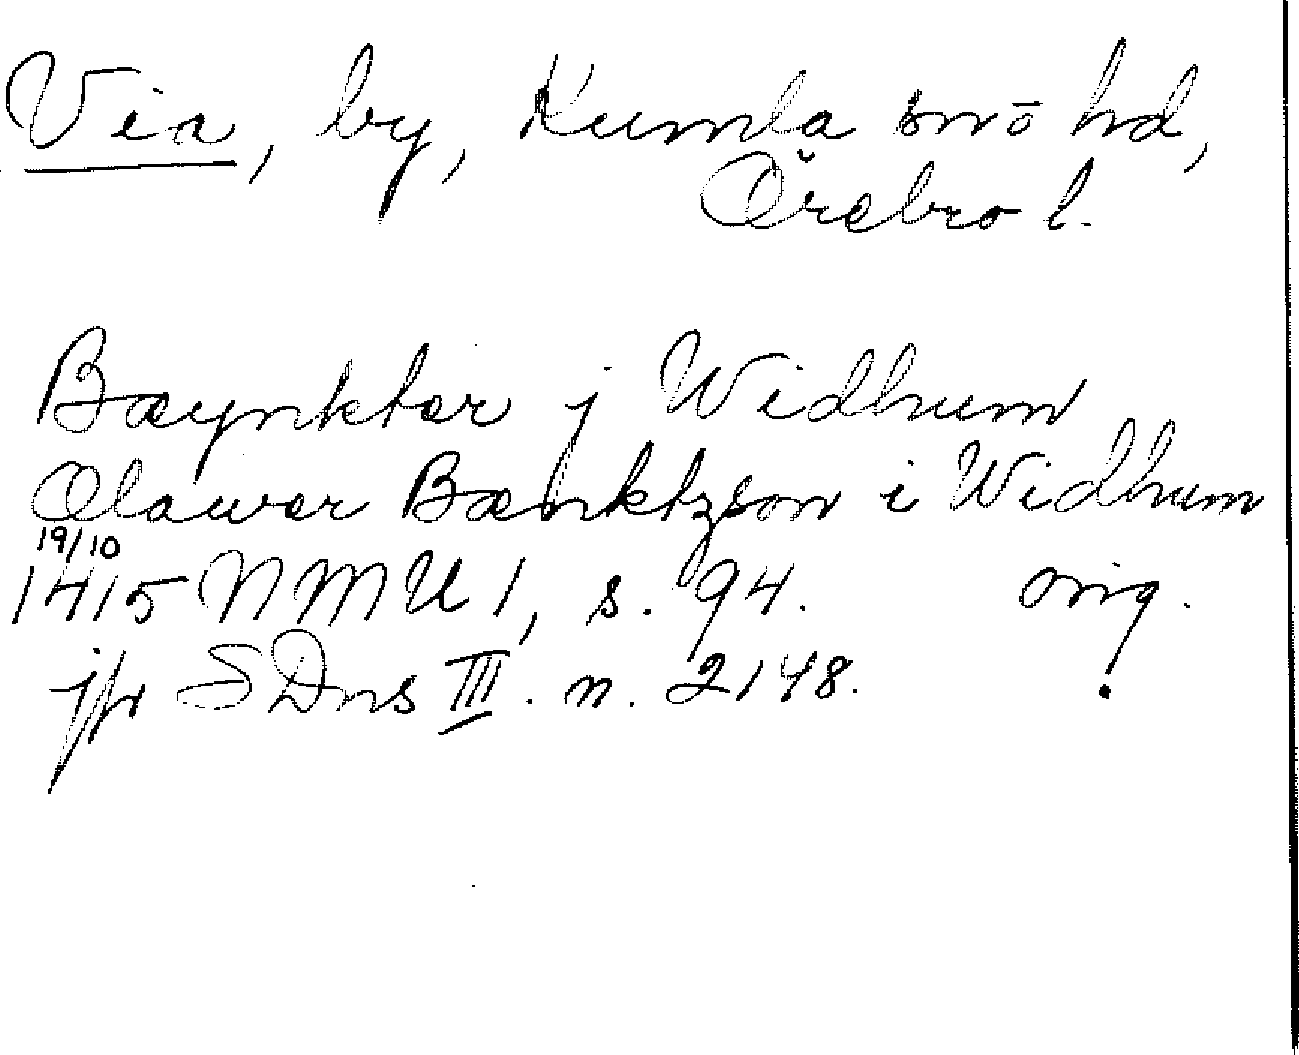 Via, by, Kumla sn o hd,
Örebro l.
Bæynkter j Widhum
Olawer Bænktzson i Widhum
19/10
1415 NMU 1, s. 94. orig.
jfr SDns III. n. 2148.